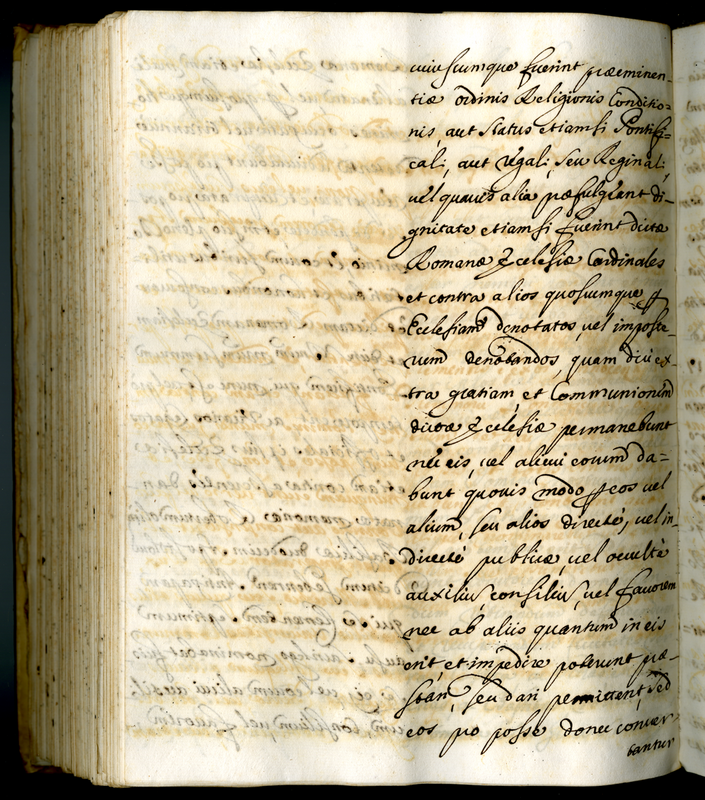 cuiuscumque fuerint præeminen-
tiæ ordinis Religionis Conditio=
nis, aut status etiamsi Pontifi=
cali, aut regali, seu Reginali,
vel quavis alia præfulgeant di-
gnitate etiamsi fuerint dictæ
Romanæ Ecclesiæ Cardinales
et contra alios quoscumque per
Ecclesiam denotatos, vel imposte-
rum denotandos, quam diu ex-
tra gratiam, et Communionem
dictæ Ecclesiæ permanebunt
nec eis, vel alicui eorum da=
bunt quovis modo per eos vel
alium, seu alios directè, vel in-
directè publicæ, vel occultè
auxiliũ, consiliũ, vel favorem
nec ab aliis quantum in eis
erit, et impedire poterunt præ-
stari, seu dari permittent, sed
eos pro posse donec conver
bantur